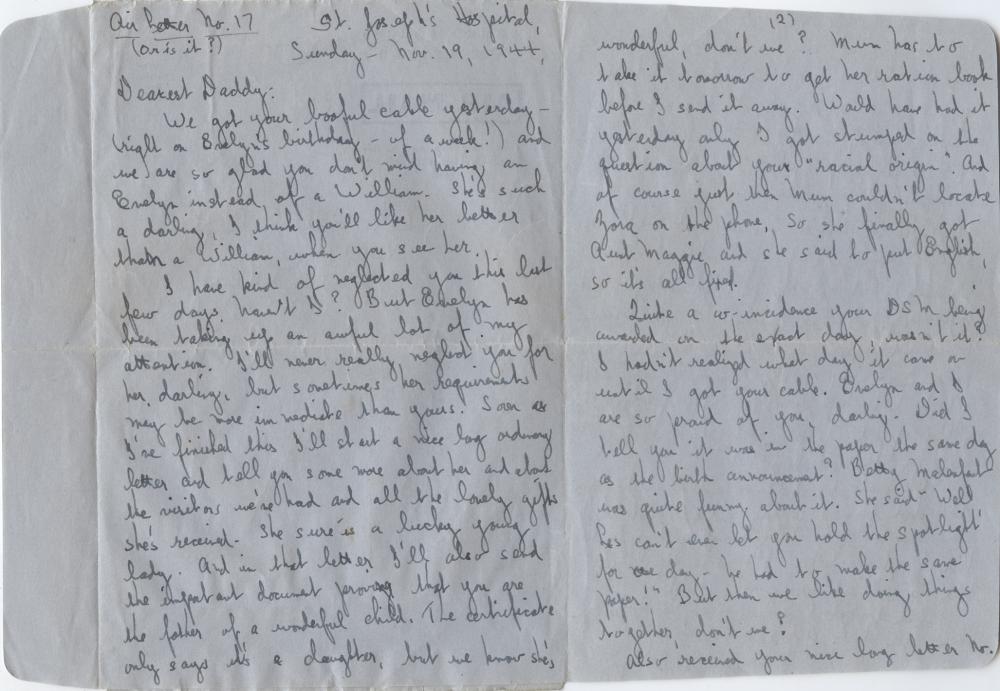 Air Letter No. 17
(or is it?)
St. Joseph's Hospital,
Sunday - Nov. 19, 1944,
Dearest Daddy:
We got your booful cable yesterday -
(right on Evelyn's birthday - of a week!) and
we are so glad you don't mind having an
Evelyn instead of a William. She's such
a darling, I think you'll like her better
than a William, when you see her.
I have kind of neglected you this last
few days, haven't I? But Evelyn has
been taking up an awful lot of my
attention. I'll never really neglect you for
her, darling, but sometimes her requirements
may be more immediate than yours. Soon as
I've finished this I'll start a nice long ordinary
letter and tell you some more about her and about
the visitors we've had and all the lovely gifts
she's received. She sure is a lucky young
lady. And in that letter I'll also send
the important document proving that you are
the father of a wonderful child. The certificate
only says it's a daughter, but we know she's
(2)
wonderful, don't we? Mum has to
take it tomorrow to get her ration book
before I send it away. Would have had it
yesterday only I got stumped on the
question about your "racial origin". And
of course just then Mum couldn't locate
Zora on the phone. So she finally got
Aunt Maggie and she said to put English,
so it's all fixed.
Quite a co-incidence your DSM being
awarded on the exact day, wasn't it?
I hadn't realized what day it came on
until I got your cable. Evelyn and I
are so proud of you, darling. Did I
tell you it was in the paper the same day
as the birth announcement? Betty
was quite funny about it. She said - "Well
can't even let you hold the spotlight
for one day - he had to make the same
paper!" But then we like doing things
together, don't we?
Also received your nice long letter No.